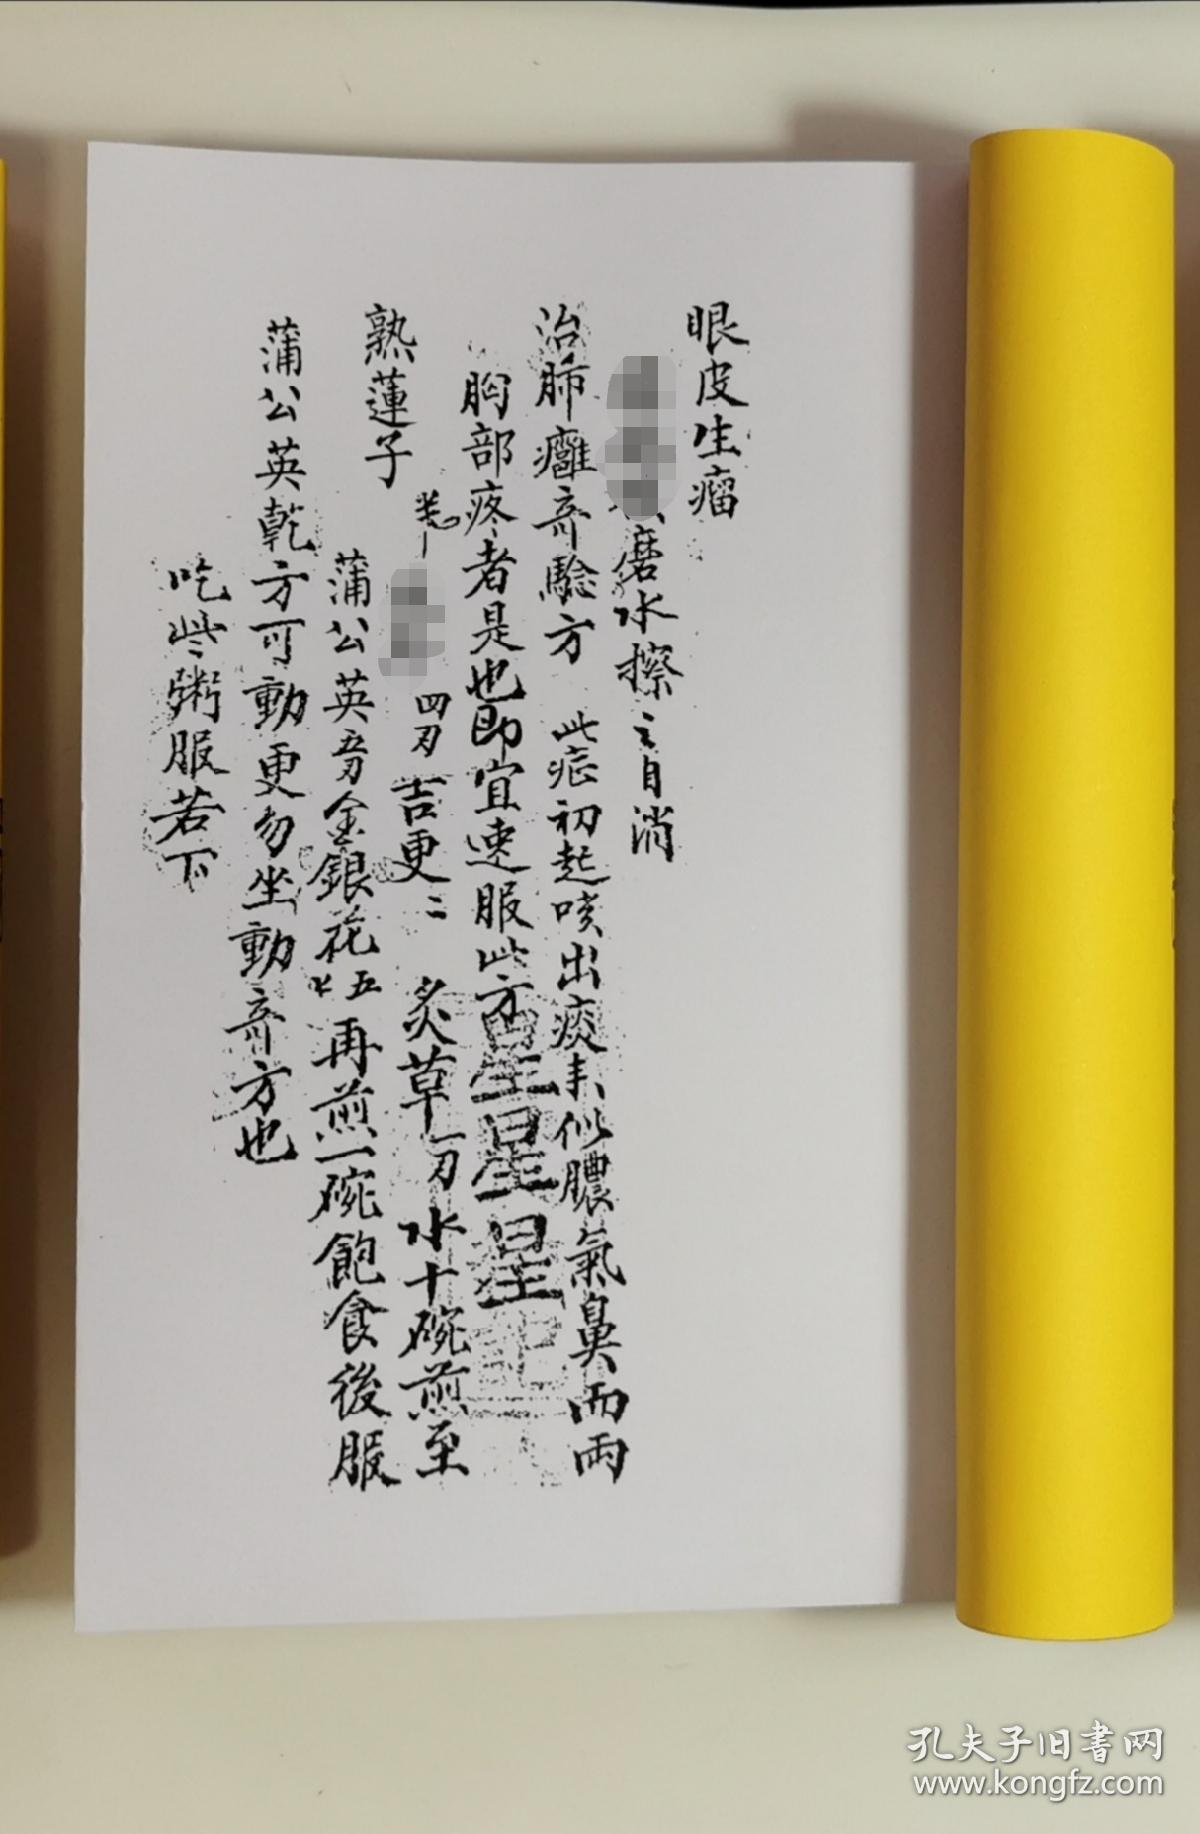 眼皮生瘤
磨水擦之自消
治肺癰奇驗方 此症初起咳出痰來似膿氣鼻而兩
胸部疼者是也即宜速服此方
熟蓮子
四刃 吉更二 炙草一刃 水十碗煎至
蒲公英 金銀花五 再煎一碗飽食後服
蒲公英乾方可動更勿坐動奇方也
吃些粥服若下
孔夫子旧书网
www.kongfz.com